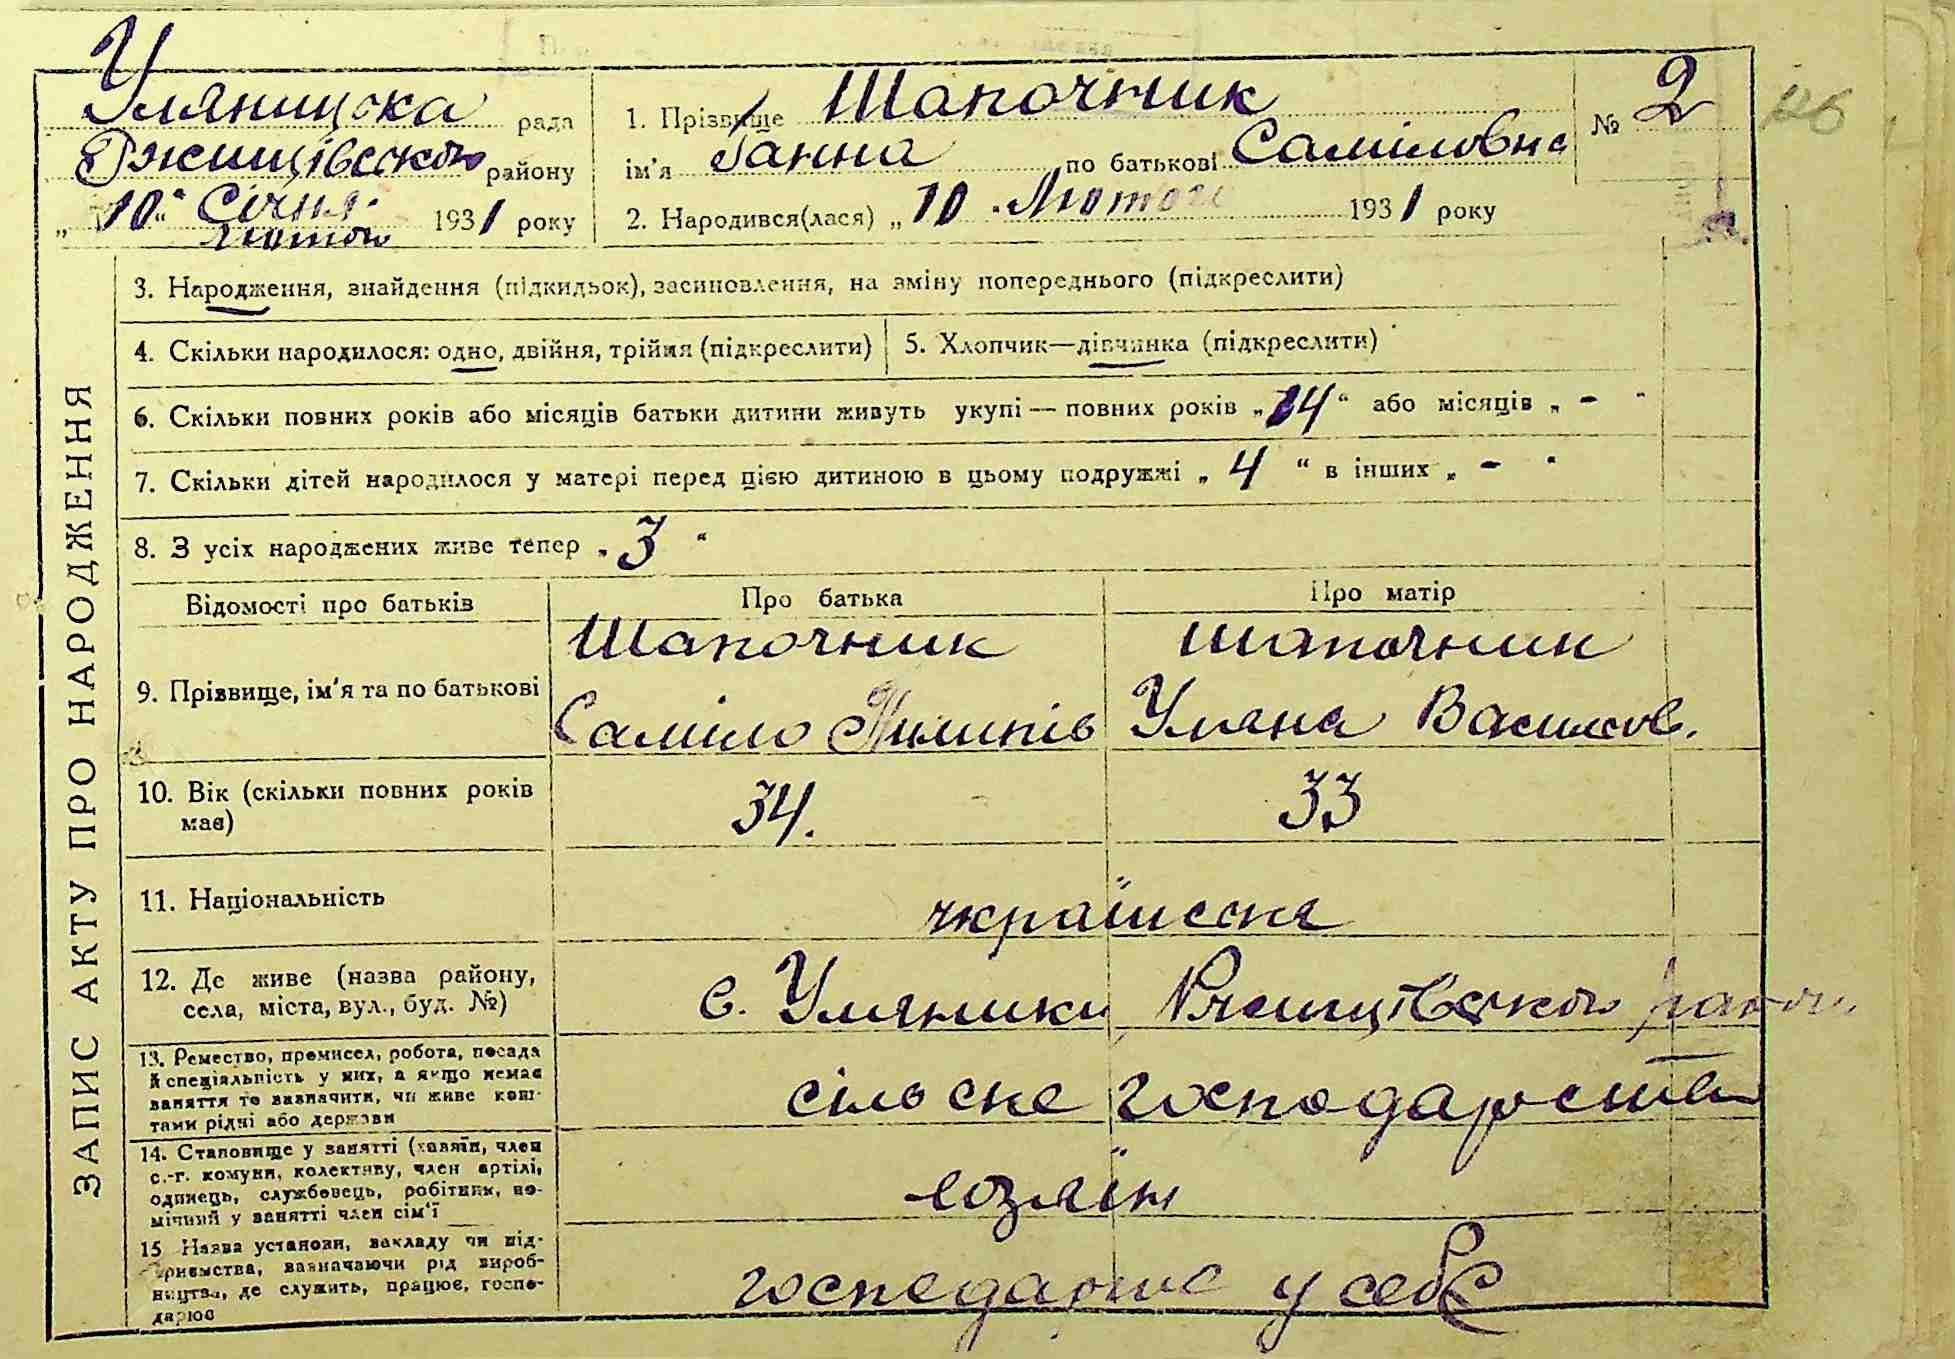 Уляницька рада
Ржищівського району
„10“ Січня 1931 року
лютого
1. Прізвище Шапочник
ім'я Ганна по батькові Саміловна
№ 2
126
2. Народився(лася) „10 Лютого 1931 року
3. Народження, знайдення (підкидьок), засиновлення, на зміну попереднього (підкреслити)
4. Скільки народилося: одно, двійня, трійня (підкреслити)
5. Хлопчик—дівчинка (підкреслити)
6. Скільки повних років або місяців батьки дитини живуть укупі — повних років „14“ або місяців „ - “
7. Скільки дітей народилося у матері перед цією дитиною в цьому подружжі „ 4 “ в інших „ - “
8. З усіх народжених живе тепер „ 3 “
ЗАПИС АКТУ ПРО НАРОДЖЕННЯ
Відомості про батьків Про батька Про матір
9. Прізвище, ім'я та по батькові
Шапочник
Саміло Пилипів
Шапочник
Уляна Василов.
10. Вік (скільки повних років має)
34. 33
11. Національність
українська
12. Де живе (назва району,
села, міста, вул., буд. №)
с. Уляники Ржищівського району
13. Ремество, промисел, робота, посада
й спеціяльність у них, а якщо немає
заняття то зазначити, чи живе кош-
тами рідні або держави
сільське господарство
14. Становище у занятті (хазяїн, член
с.-г. комуни, колективу, член артілі,
одинець, службовець, робітник, по-
мічний у занятті член сім'ї
хозяїн
15 Назва установи, закладу чи під-
приємства, зазначаючи рід вироб-
ництва, де служить, працює, госпо-
дарює
господарює у себе